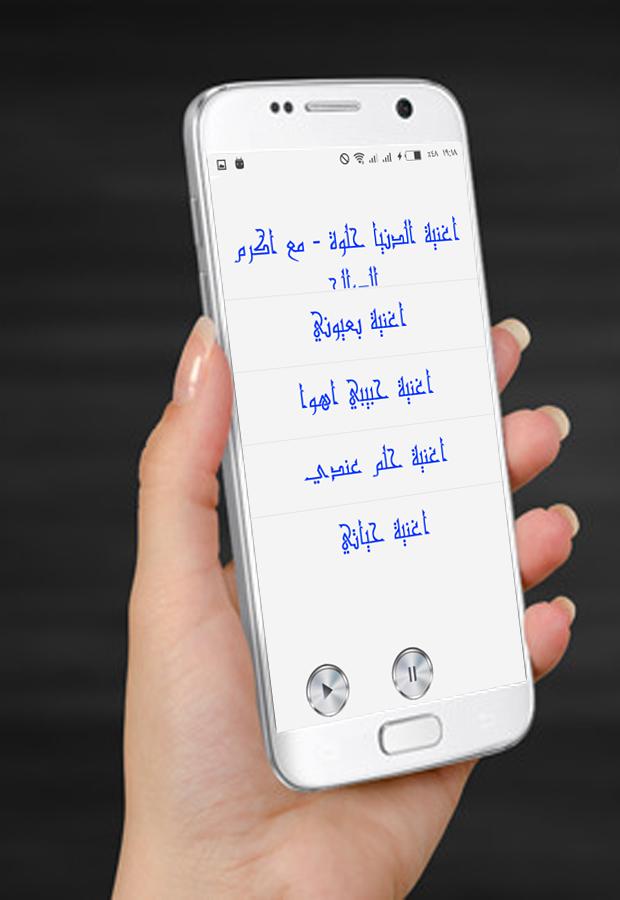 ٪٤٨ ١٩:١٨
اغنية الدنيا حلوة - مع اكرم
اغنية بعيوني
اغنية حبيبي اهوا
اغنية حلم عندي
اغنية حياتي